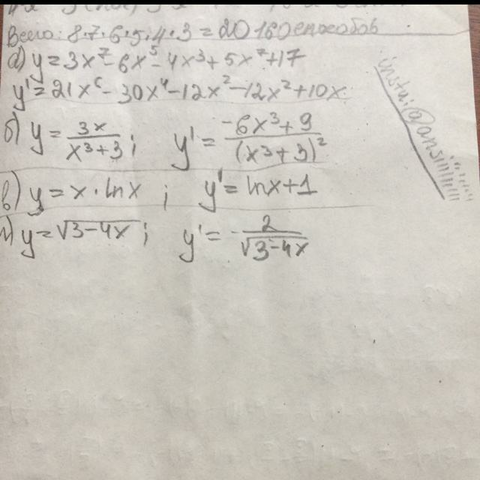 Всего: 8·7·6·5·4·3 = 20160 способов
а) y = 3x⁷ - 6x⁵ - 4x³ + 5x² + 17
y' = 21x⁶ - 30x⁴ - 12x² - 12x² + 10x
б) y = 3x / (x³+3) ; y' = (-6x³+9) / (x³+3)²
в) y = x · lnx ; y' = lnx + 1
г) y = √(3-4x) ; y' = - 2 / √(3-4x)